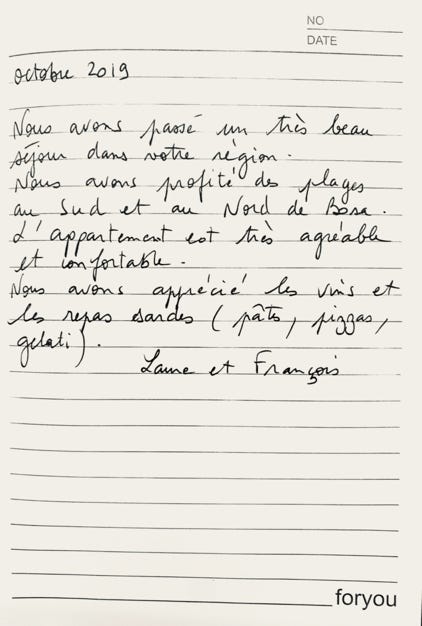 NO
DATE
octobre 2019
Nous avons passé un très beau
séjour dans votre région.
Nous avons profité des plages
au Sud et au Nord de Bosa.
L'appartement est très agréable
et confortable.
Nous avons apprécié les vins et
les repas sardes (pâtes, pizzas,
gelati).
Laure et François
foryou